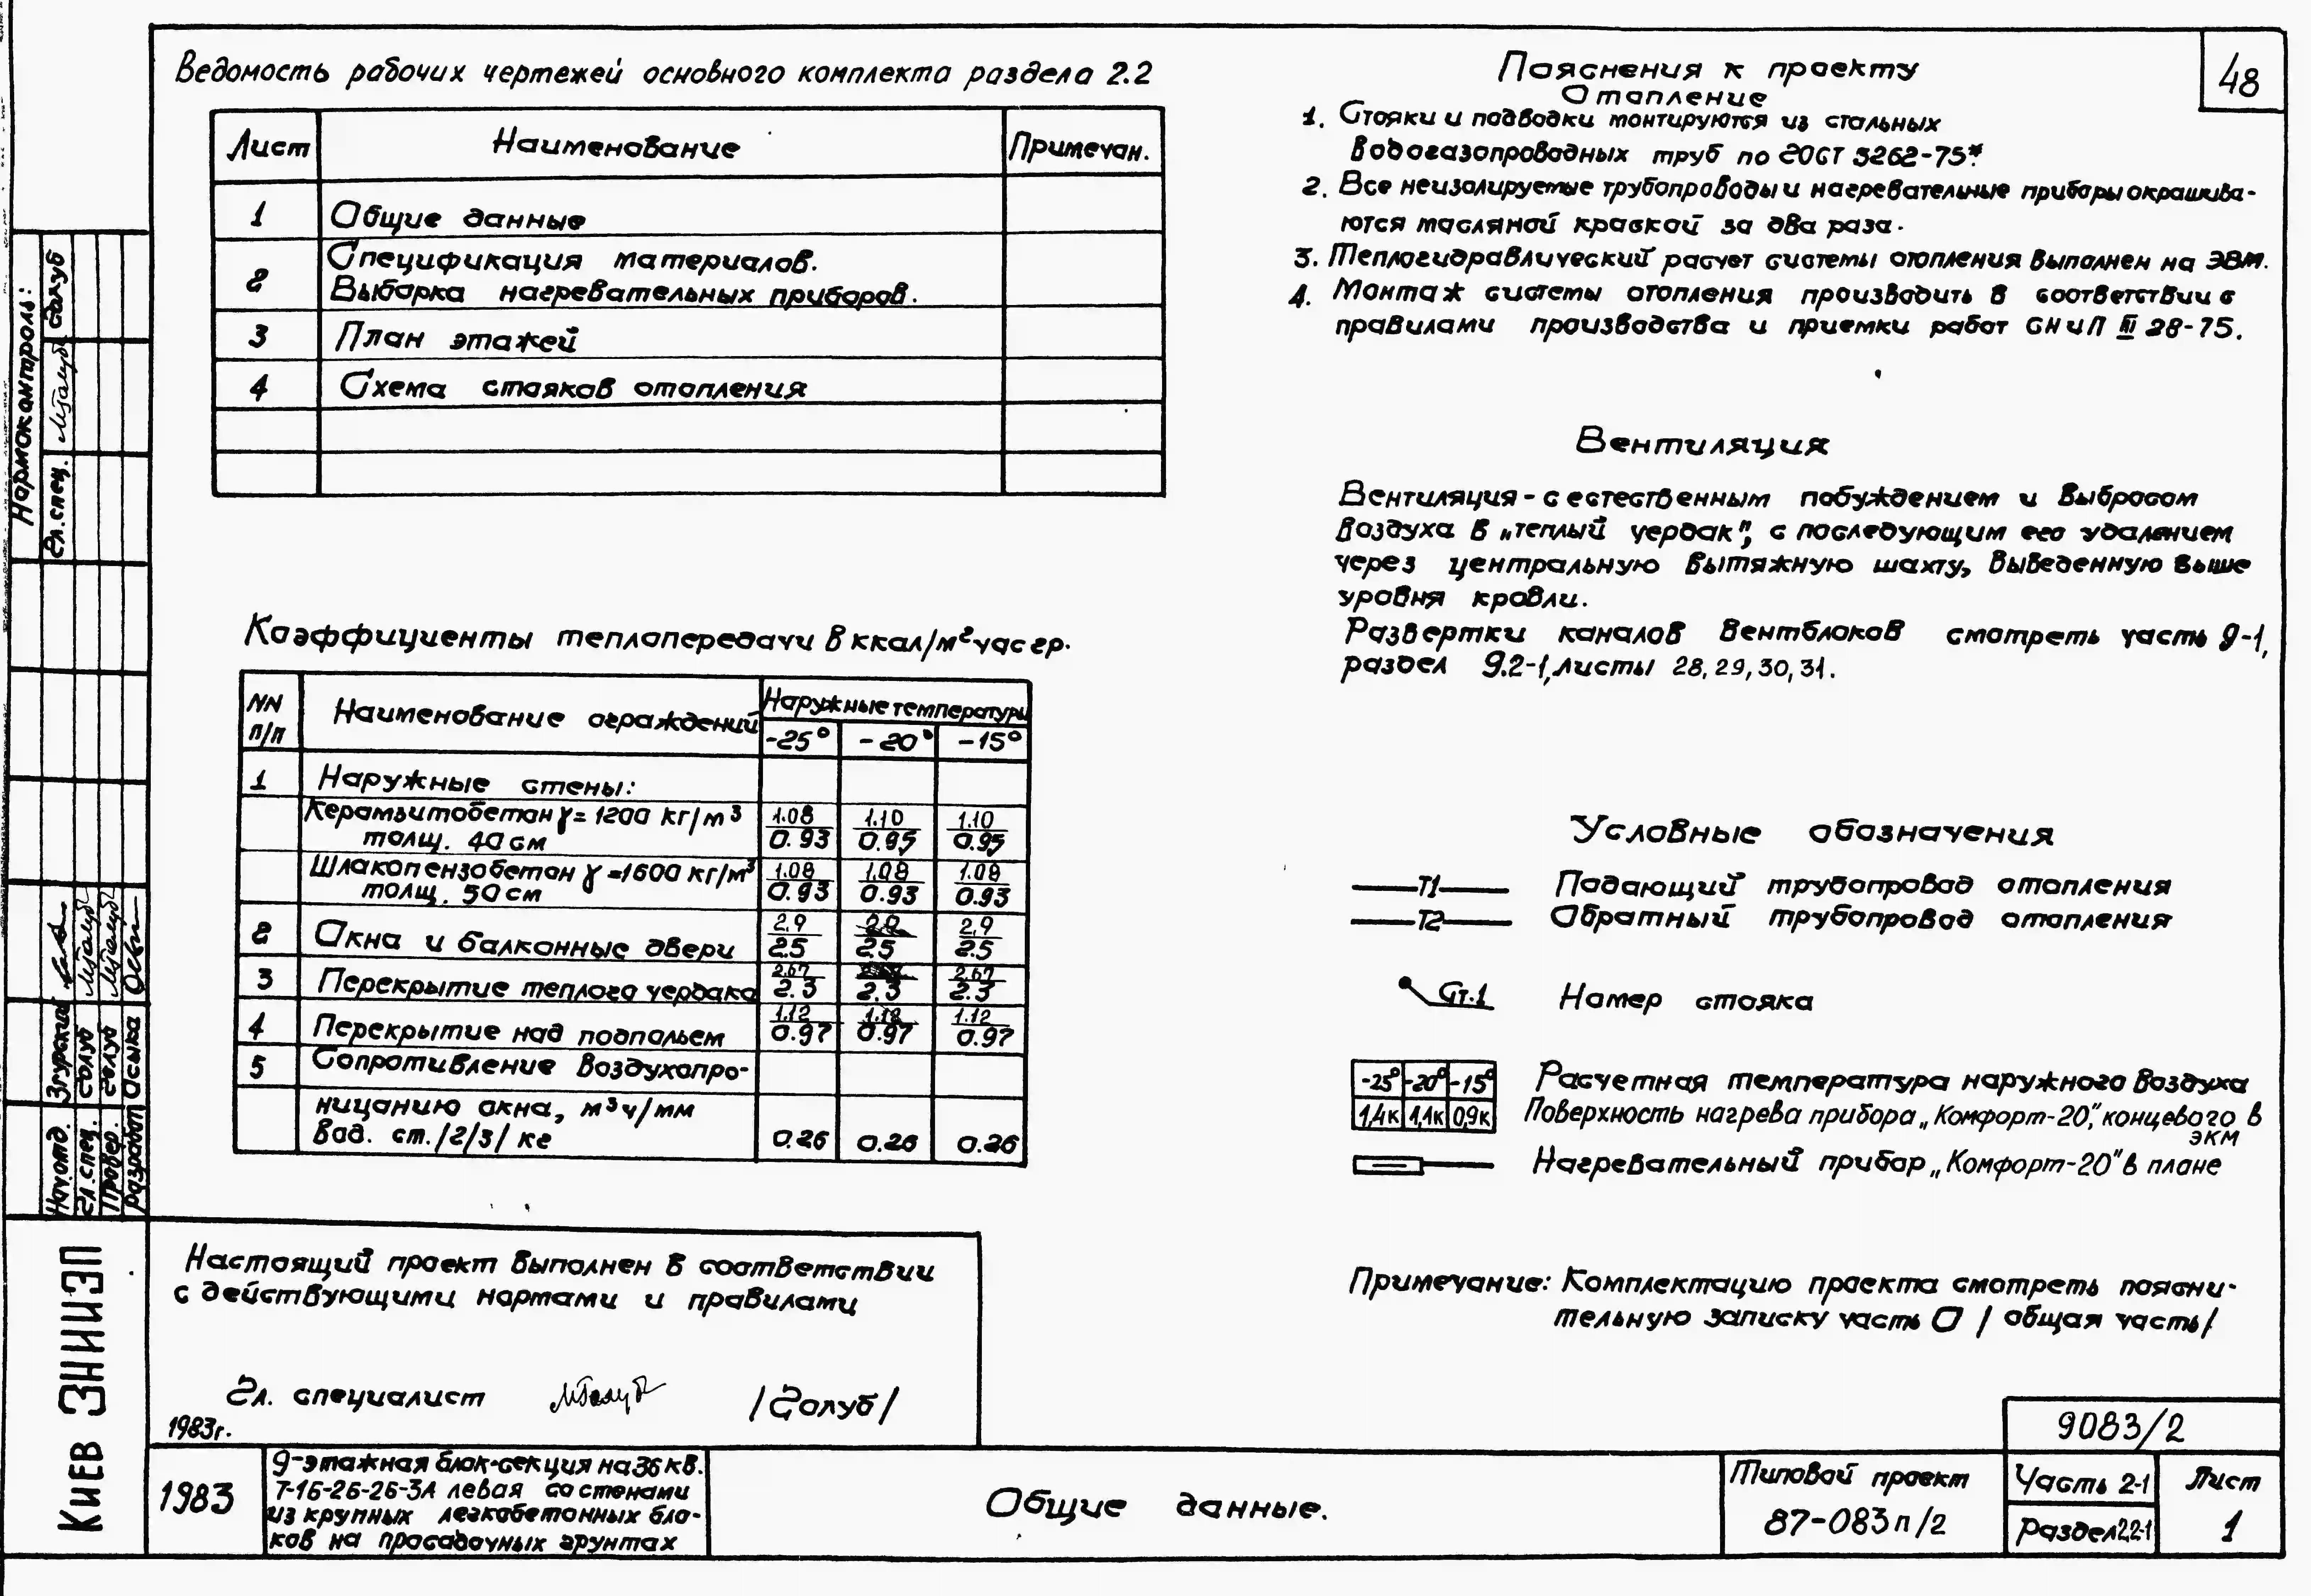 48
Ведомость рабочих чертежей основного комплекта раздела 2.2
Лист Наименование Примечан.
1 Общие данные
2 Спецификация материалов.
Выборка нагревательных приборов.
3 План этажей
4 Схема стояков отопления
Коэффициенты теплопередачи в ккал/м² час гр.
NN п/п Наименование ограждений Наружные температуры
-25° -20° -15°
1 Наружные стены:
Керамзитобетон γ=1200 кг/м³ 1.08 1.10 1.10
толщ. 40 см 0.93 0.95 0.95
Шлакопензобетон γ=1600 кг/м³ 1.08 1.08 1.08
толщ. 50 см 0.93 0.93 0.93
2 Окна и балконные двери 2,9 2,9
2.5 2.5 2.5
3 Перекрытие теплого чердака 2.67 2.67
2.3 2.3 2.3
4 Перекрытие над подпольем 1.12 1.12 1.12
0.97 0.97 0.97
5 Сопротивление воздухопро-
ницанию окна, м³ч/мм
вод. ст./2/3/ кг 0.26 0.26 0.26
Настоящий проект выполнен в соответствии
с действующими нормами и правилами
Гл. специалист /Голуб/
1983г.
Пояснения к проекту
Отопление
1. Стояки и подводки монтируются из стальных
водогазопроводных труб по ГОСТ 3262-75*.
2. Все неизолируемые трубопроводы и нагревательные приборы окрашива-
ются масляной краской за два раза.
3. Теплогидравлический расчет системы отопления выполнен на ЭВМ.
4. Монтаж системы отопления производить в соответствии с
правилами производства и приемки работ СНиП III 28-75.
Вентиляция
Вентиляция - с естественным побуждением и выбросом
воздуха в „теплый чердак", с последующим его удалением
через центральную вытяжную шахту, выведенную выше
уровня кровли.
Развертки каналов вентблоков смотреть часть 9-1,
раздел 9.2-1, листы 28, 29, 30, 31.
Условные обозначения
Т1 Подающий трубопровод отопления
Т2 Обратный трубопровод отопления
Ст.1 Номер стояка
-25° -20° -15° Расчетная температура наружного воздуха
1,4к 1,1к 0,9к Поверхность нагрева прибора „Комфорт-20", концевого в
экм
Нагревательный прибор „Комфорт-20" в плане
Примечание: Комплектацию проекта смотреть поясни-
тельную записку часть 0 / общая часть/
9083/2
1983
9-этажная блок-секция на 36 кв.
7-1Б-2Б-2Б-3А левая со стенами
из крупных легкобетонных бло-
ков на просадочных грунтах
Общие данные.
Типовой проект
87-083п/2
Часть 2-1
Раздел 2.2-1
Лист
1
Нормоконтроль:
Гл. спец. Голуб
Нач. отд. Згурский
Гл. спец. Голуб
Провер. Голуб
Разработ Осыка
Киев ЗНИИЭП